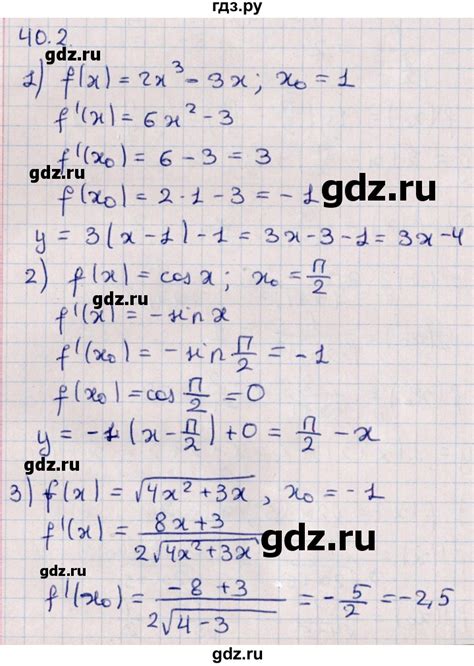 гдз.ру
40.2.
gdz.ru
1) f(x) = 2x³ - 3x; x₀ = 1
f'(x) = 6x² - 3
f'(x₀) = 6 - 3 = 3
gdz.ru
f(x₀) = 2·1 - 3 = -1
gdz.ru
y = 3(x-1)-1 = 3x-3-1 = 3x-4
2) f(x) = cos x; x₀ = π/2
gdz.ru
f'(x) = -sin x
f'(x₀) = -sin π/2 = -1
gdz.ru
f(x₀) = cos π/2 = 0
y = -1(x - π/2) + 0 = π/2 - x
gdz.ru
3) f(x) = √(4x² + 3x), x₀ = -1
f'(x) = (8x+3)/(2√(4x²+3x))
gdz.ru
f'(x₀) = (-8+3)/(2√(4-3)) = -5/2 = -2,5
gdz.ru